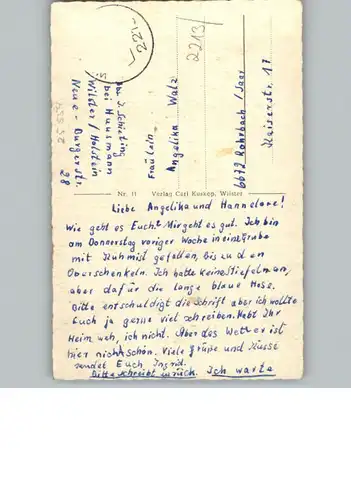 22.-
2213
Abs. I. Schieting
bei Hausmann
Wilster / Holstein
Neue-Burger str.
28
Fräulein
Angelika Walz
6672 Rohrbach / Saar
Kaiserstr. 17
Nr. 11 Verlag Carl Kuskop, Wilster
Liebe Angelika und Hannelore!
Wie geht es Euch? Mir geht es gut. Ich bin
am Donnerstag voriger Woche in eine Grube
mit Kuhmist gefallen, bis zu den
Oberschenkeln. Ich hatte keine Stiefel an,
aber dafür die lange blaue Hose.
Bitte entschuldigt die Schrift aber ich wollte
Euch ja gerne viel schreiben. Habt Ihr
Heimweh, ich nicht. Aber das Wetter ist
hier nicht schön. Viele Grüße und Küsse
sendet Euch Ingrid.
Bitte schreibt zurück. Ich warte